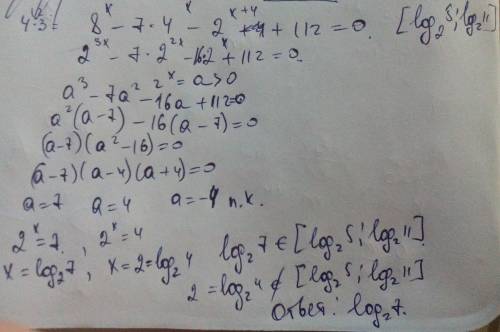 8ˣ - 7·4ˣ - 2ˣ⁺⁴ + 112 = 0. [log₂5; log₂11]
2³ˣ - 7·2²ˣ - 16·2ˣ + 112 = 0.
2ˣ = a > 0
a³ - 7a² - 16a + 112 = 0
a²(a-7) - 16(a-7) = 0
(a-7)(a²-16) = 0
(a-7)(a-4)(a+4) = 0
a = 7 a = 4 a = -4 п.к.
2ˣ = 7, 2ˣ = 4
x = log₂7, x = 2 = log₂4
log₂7 ∈ [log₂5; log₂11]
2 = log₂4 ∉ [log₂5; log₂11]
Ответ: log₂7.